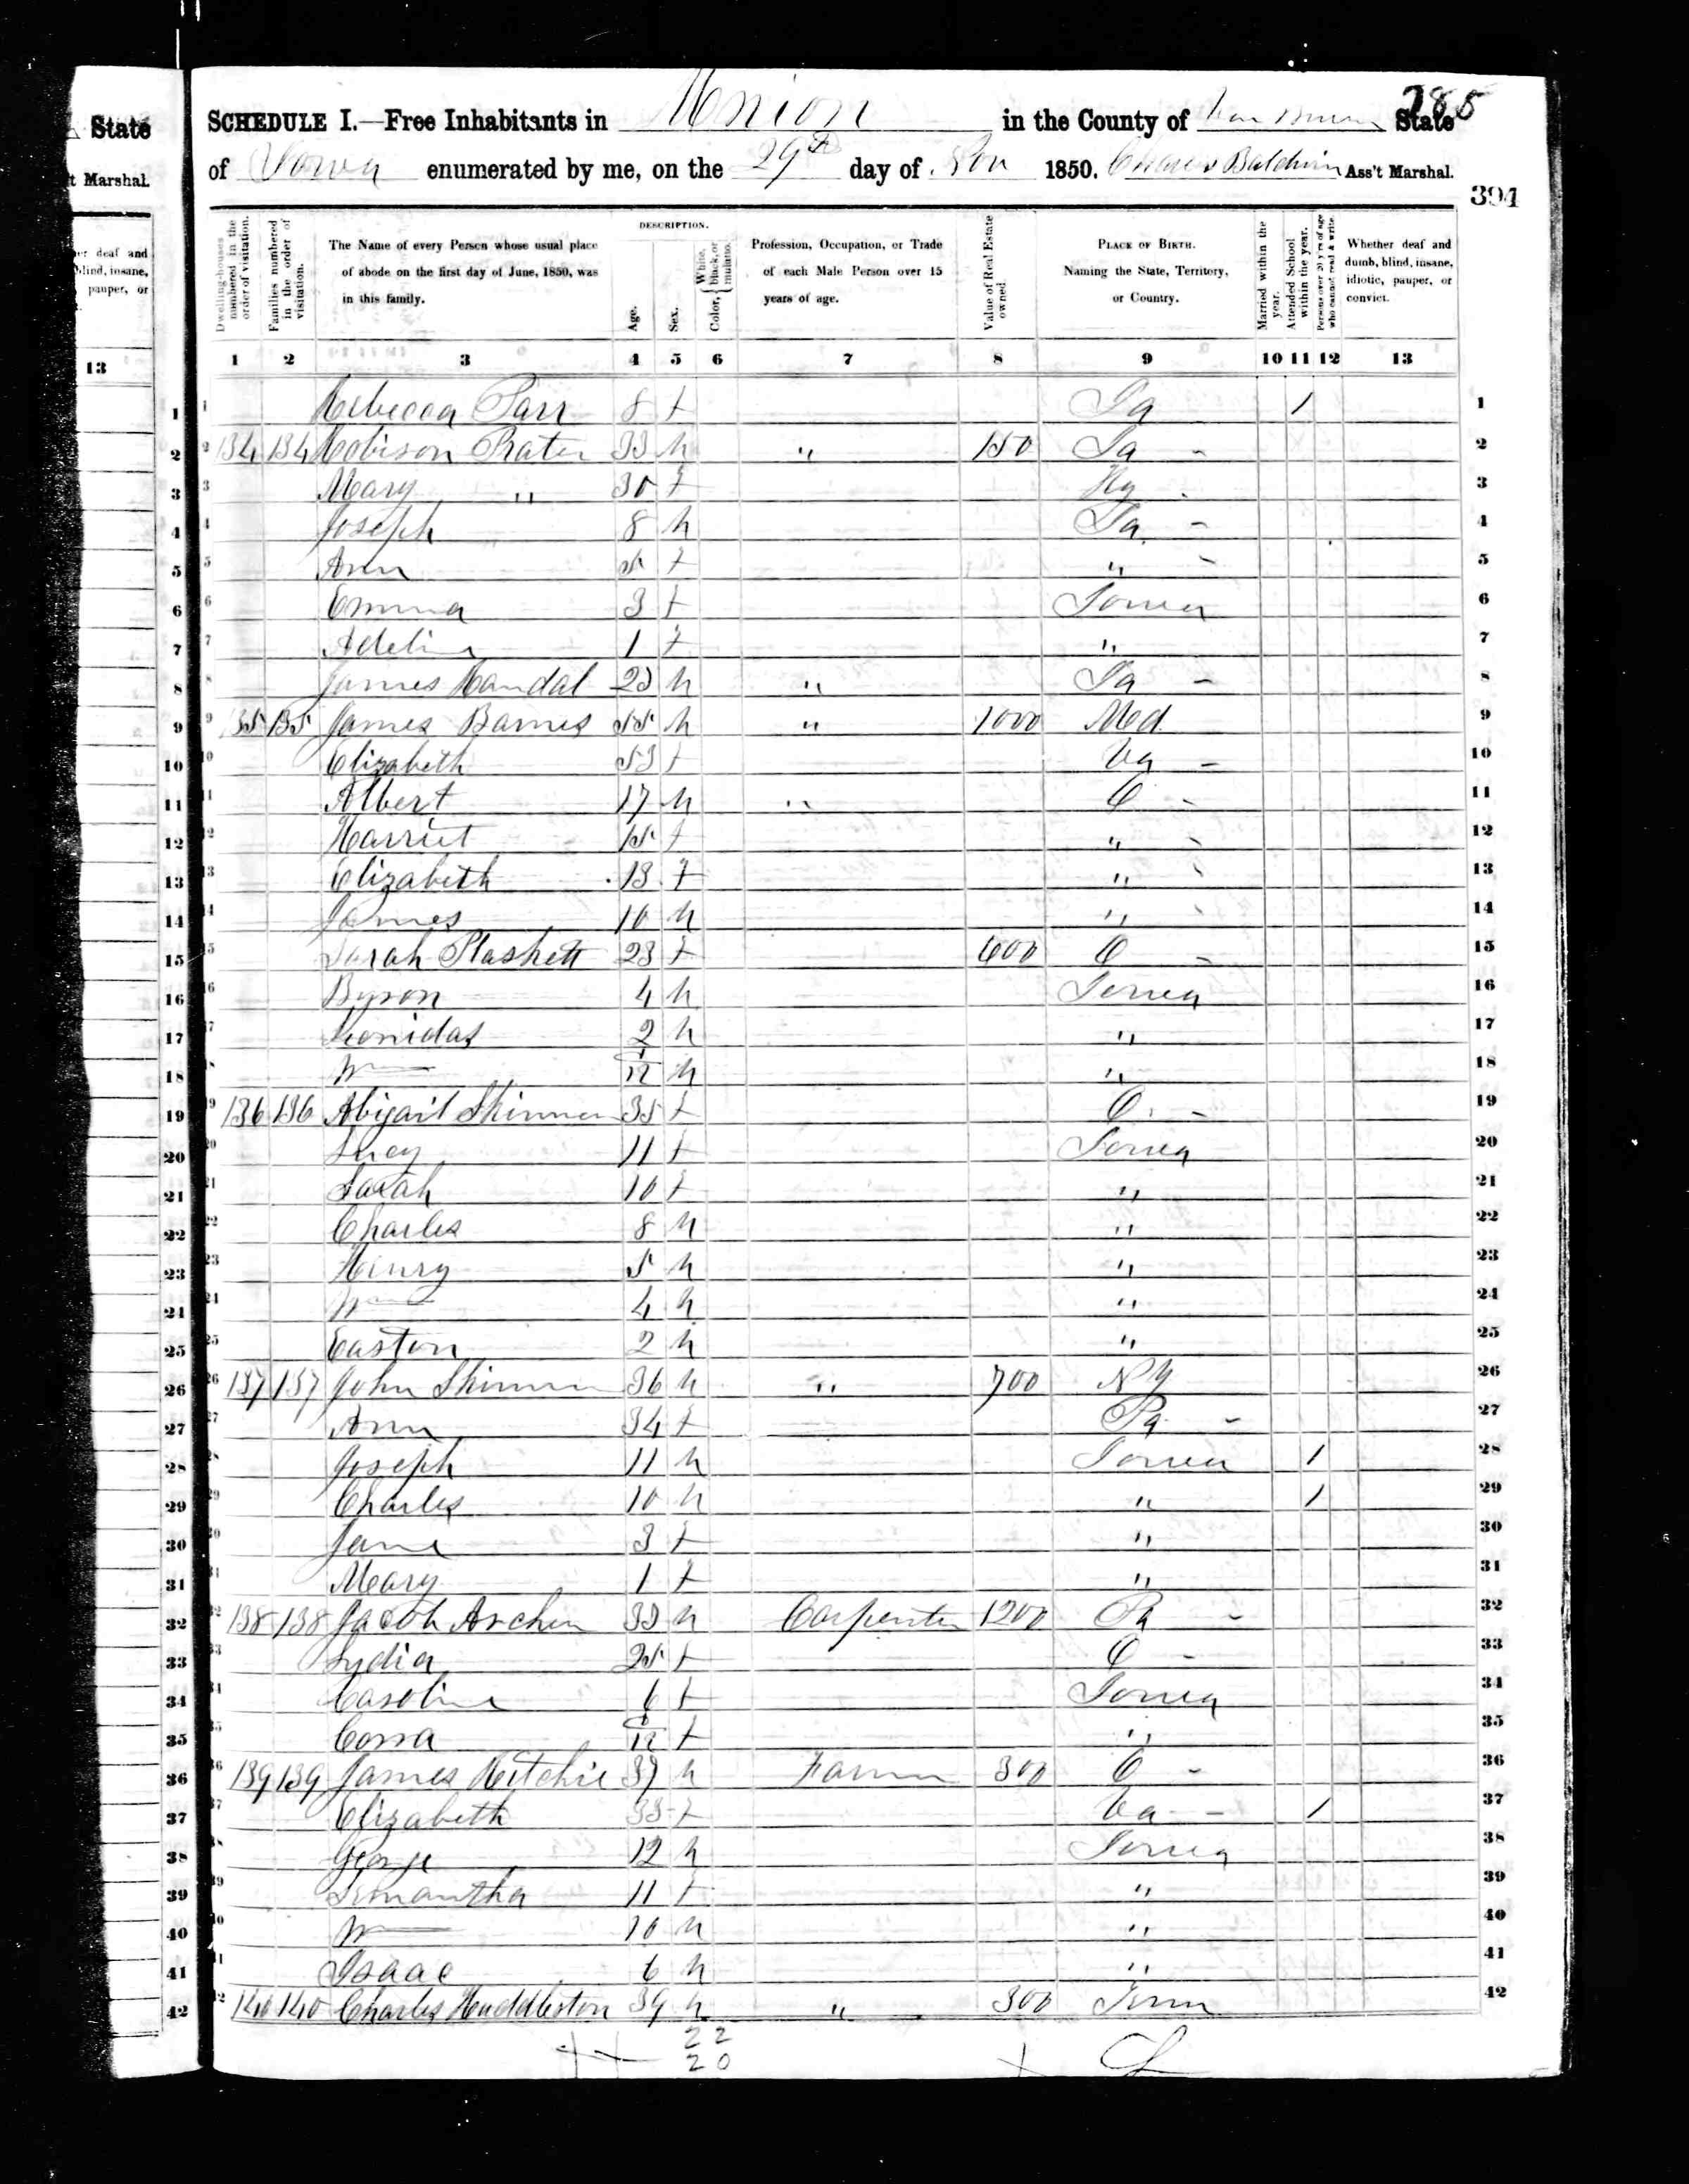 State
t Marshal.
er deaf and
blind, insane,
pauper, or
13
785
SCHEDULE I.—Free Inhabitants in Union in the County of Van Buren State
of Iowa enumerated by me, on the 29th day of Nov 1850. Charles Baldwin Ass't Marshal.
394
Dwelling-houses numbered in the order of visitation.
Families numbered in the order of visitation.
The Name of every Person whose usual place of abode on the first day of June, 1850, was in this family.
DESCRIPTION.
Age.
Sex.
Color, { White, black, or mulatto.
Profession, Occupation, or Trade of each Male Person over 15 years of age.
Value of Real Estate owned.
PLACE OF BIRTH. Naming the State, Territory, or Country.
Married within the year.
Attended School within the year.
Persons over 20 y'rs of age who cannot read & write.
Whether deaf and dumb, blind, insane, idiotic, pauper, or convict.
1 2 3 4 5 6 7 8 9 10 11 12 13
1 Rebecca Parr 8 f Ia 1 1
2 134 134 Robison Prater 33 M " 150 Ia - 2
3 Mary " 30 f Ky 3
4 Joseph 8 M Ia - 4
5 Ann 5 f " 5
6 Emma 3 f Iowa 6
7 Adeline 1 f " 7
8 James Randal 23 M " Ia - 8
9 135 135 James Barnes 55 M " 1000 Md 9
10 Elizabeth 53 f Va - 10
11 Albert 17 M " O - 11
12 Harriet 15 f " 12
13 Elizabeth 13 f " 13
14 James 10 M " 14
15 Sarah Plaskett 23 f 600 O - 15
16 Byron 4 M Iowa 16
17 Leonidas 2 M " 17
18 Wm /12 M " 18
19 136 136 Abigail Skinner 35 f O - 19
20 Lucy 11 f Iowa 20
21 Sarah 10 f " 21
22 Charles 8 M " 22
23 Henry 5 M " 23
24 Wm 4 M " 24
25 Easton 2 M " 25
26 137 137 John Skinner 36 M " 700 NY 26
27 Ann 34 f Pa - 27
28 Joseph 11 M Iowa 1 28
29 Charles 10 M " 1 29
30 Jane 3 f " 30
31 Mary 1 f " 31
32 138 138 Jacob Archer 33 M Carpenter 1200 Pa - 32
33 Lydia 25 f O - 33
34 Caroline 6 f Iowa 34
35 Corra /12 f " 35
36 139 139 James Ritchie 37 M Farmer 300 O - 36
37 Elizabeth 33 f Va - 1 37
38 George 12 M Iowa 38
39 Simantha 11 f " 39
40 Wm 10 M " 40
41 Isaac 6 M " 41
42 140 140 Charles Huddleston 39 M " 300 Tenn 42
22
20